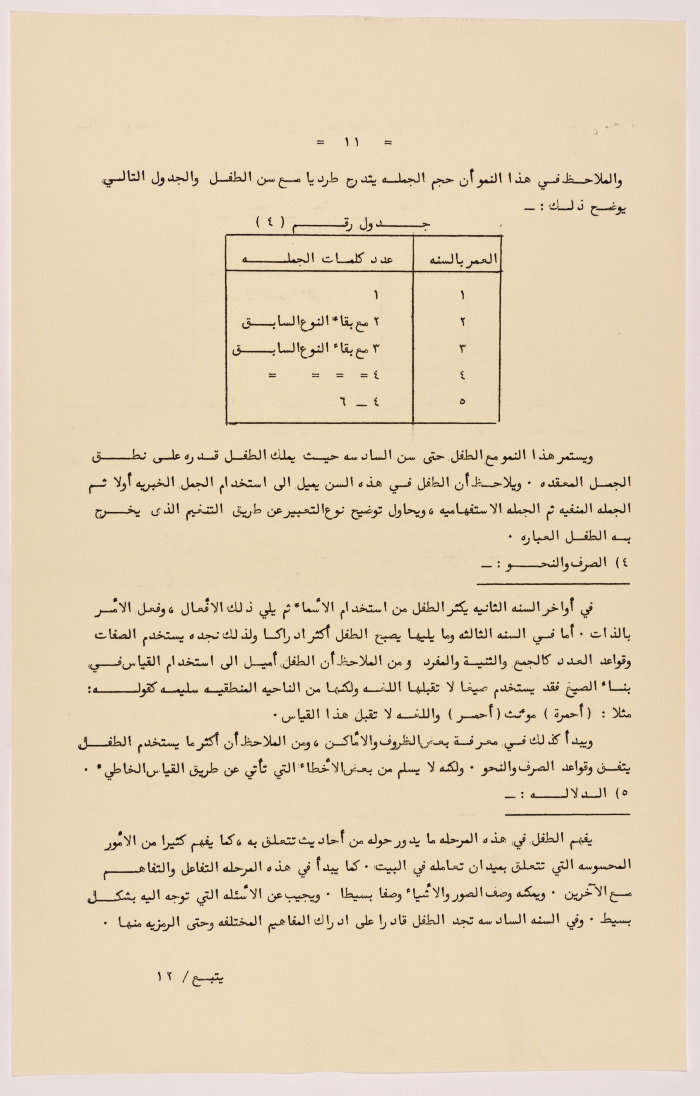 = ١١ =
والملاحظ في هذا النمو أن حجم الجمله يتدرج طرديا مع سن الطفل والجدول التالي
يوضح ذلك : ـ
جدول رقم ( ٤ )
العمر بالسنه عدد كلمات الجمله
١ ١
٢ ٢ مع بقاء النوع السابق
٣ ٣ مع بقاء النوع السابق
٤ ٤ = = = =
٥ ٤ ـ ٦
ويستمر هذا النمو مع الطفل حتى سن السادسه حيث يملك الطفل قدره على نطق
الجمل المعقده ٠ ويلاحظ أن الطفل في هذه السن يميل الى استخدام الجمل الخبريه أولا ثم
الجمله المنفيه ثم الجمله الاستفهاميه ، ويحاول توضيح نوع التعبير عن طريق التنغيم الذى يخرج
به الطفل العباره ٠
٤) الصرف والنحو : ـ
في أواخر السنه الثانيه يكثر الطفل من استخدام الأسماء ثم يلي ذلك الأفعال ، وفعل الأمر
بالذات ٠ أما في السنه الثالثه وما يليها يصبح الطفل أكثر ادراكا ولذلك نجده يستخدم الصفات
وقواعد العدد كالجمع والتثنية والمفرد ومن الملاحظ أن الطفل أميل الى استخدام القياس في
بناء الصيغ فقد يستخدم صيغا لا تقبلها اللغه ولكنها من الناحيه المنطقيه سليمه كقوله :
مثلا : ( أحمرة ) موءنث ( أحمر ) واللغه لا تقبل هذا القياس ٠
ويبدأ كذلك في معرفة بعض الظروف والأماكن ، ومن الملاحظ أن أكثر ما يستخدم الطفل
يتفق وقواعد الصرف والنحو ٠ ولكنه لا يسلم من بعض الأخطاء التي تأتي عن طريق القياس الخاطيء ٠
٥) الدلاله : ـ
يفهم الطفل في هذه المرحله ما يدور حوله من أحاديث تتعلق به ، كما يفهم كثيرا من الأمور
المحسوسه التي تتعلق بميدان تعامله في البيت ٠ كما يبدأ في هذه المرحله التفاعل والتفاهم
مع الآخرين ٠ ويمكنه وصف الصور والأشياء وصفا بسيطا ٠ ويجيب عن الأسئله التي توجه اليه بشكل
بسيط ٠ وفي السنه السادسه تجد الطفل قادرا على ادراك المفاهيم المختلفه وحتى الرمزيه منها ٠
يتبع / ١٢